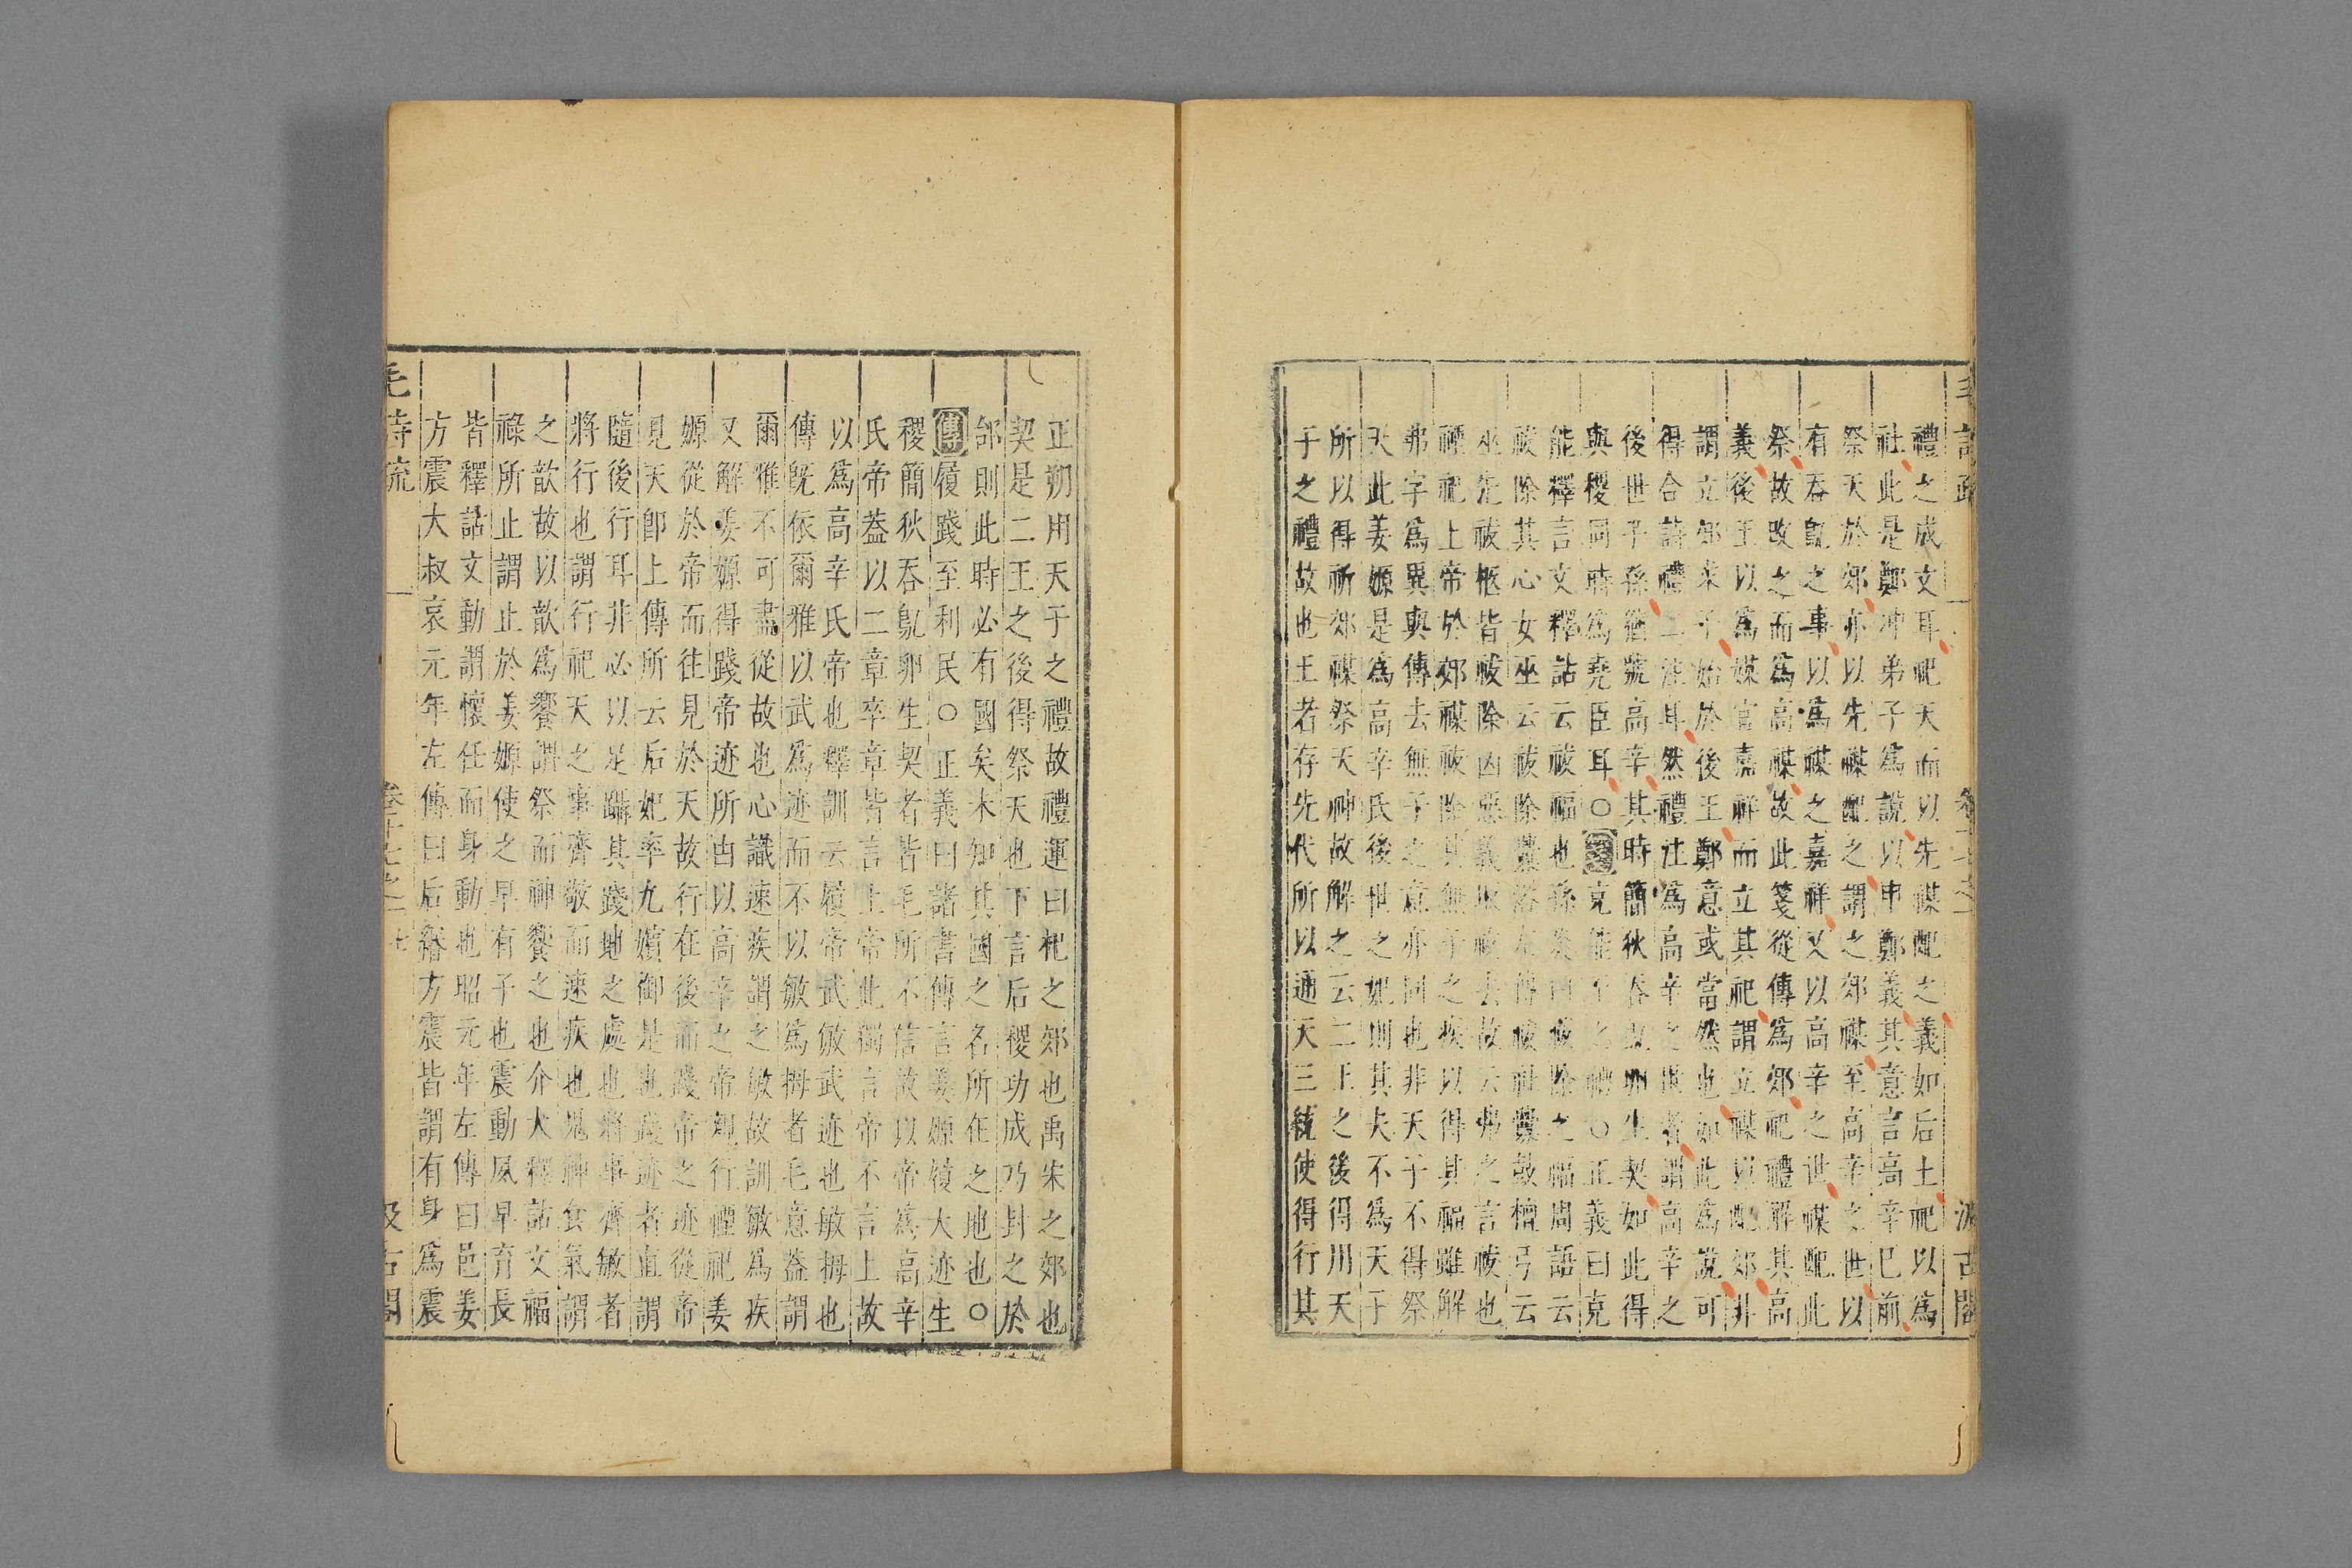 禮之成文耳祀天而以先禖配之義如后土祀以爲
社此是鄭冲弟子爲說以申鄭義其意言高辛巳前
祭天於郊亦以先禖配之謂之郊禖至高辛之世以
有吞鳦之事以爲禖之嘉祥又以高辛之世禖配此
祭故改之而爲高禖故此箋從傳爲郊祀禮解其高
義後王以爲媒官嘉祥而立其祀謂立禖以配郊非
謂立郊禖于始於後王鄭意或當然也如此爲說可
得合詩禮二注耳然禮注爲高辛之世者謂高辛之
後世子孫猶號高辛其時簡狄吞鳦卵生契如此得
與稷同時爲堯臣耳○克能至之禮○正義曰克
能釋言文釋詁云祓福也孫炎曰祓除之福周語云
祓除其心女巫云祓除釁浴左傳祓社釁鼓檀弓云
巫先祓柩皆祓除凶惡義取祓去故云弗之言祓也
禋祀上帝於郊禖祓除其無子之疾以得其福雖解
弗字爲異與傳去無子之意亦同也非天子不得祭
天此姜嫄是爲高辛氏後世之妃則其夫不爲天子
所以得祈郊禖祭天神故解之云二王之後得用天
子之禮故也王者存先代所以通天三統使得行其
毛詩疏
卷十七之一
汲古閣
正朔用天子之禮故禮運曰杞之郊也禹宋之郊也
契是二王之後得祭天也下言后稷功成乃封之於
邰則此時必有國矣未知其國之名所在之地也○
傳履踐至利民○正義曰諸書傳言姜嫄履大迹生
稷簡狄吞鳦卵生契者皆毛所不信故以帝爲高辛
氏帝葢以二章卒章皆言上帝此獨言帝不言上故
以爲高辛氏帝也釋訓云履帝武敏武迹也敏拇也
傳旣依爾雅以武爲迹而不以敏爲拇者毛意葢謂
爾雅不可盡從故也心識速疾謂之敏故訓敏爲疾
又解姜嫄得踐帝迹所由以高辛之帝親行禋祀姜
嫄從於帝而往見於天故行在後而踐帝之迹從帝
見天卽上傳所云后妃率九嬪御是也踐迹者直謂
隨後行耳非必以足躡其踐地之處也將事齊敏者
將行也謂行祀天之事齊敬而速疾也鬼神食氣謂
之歆故以歆爲饗謂祭而神饗之也介大釋詁文福
祿所止謂止於姜嫄使之早有子也震動夙早育長
皆釋詁文動謂懷任而身動也昭元年左傳曰邑姜
方震大叔哀元年左傳曰后緡方震皆謂有身爲震
毛詩疏
卷十七之一
汲古閣